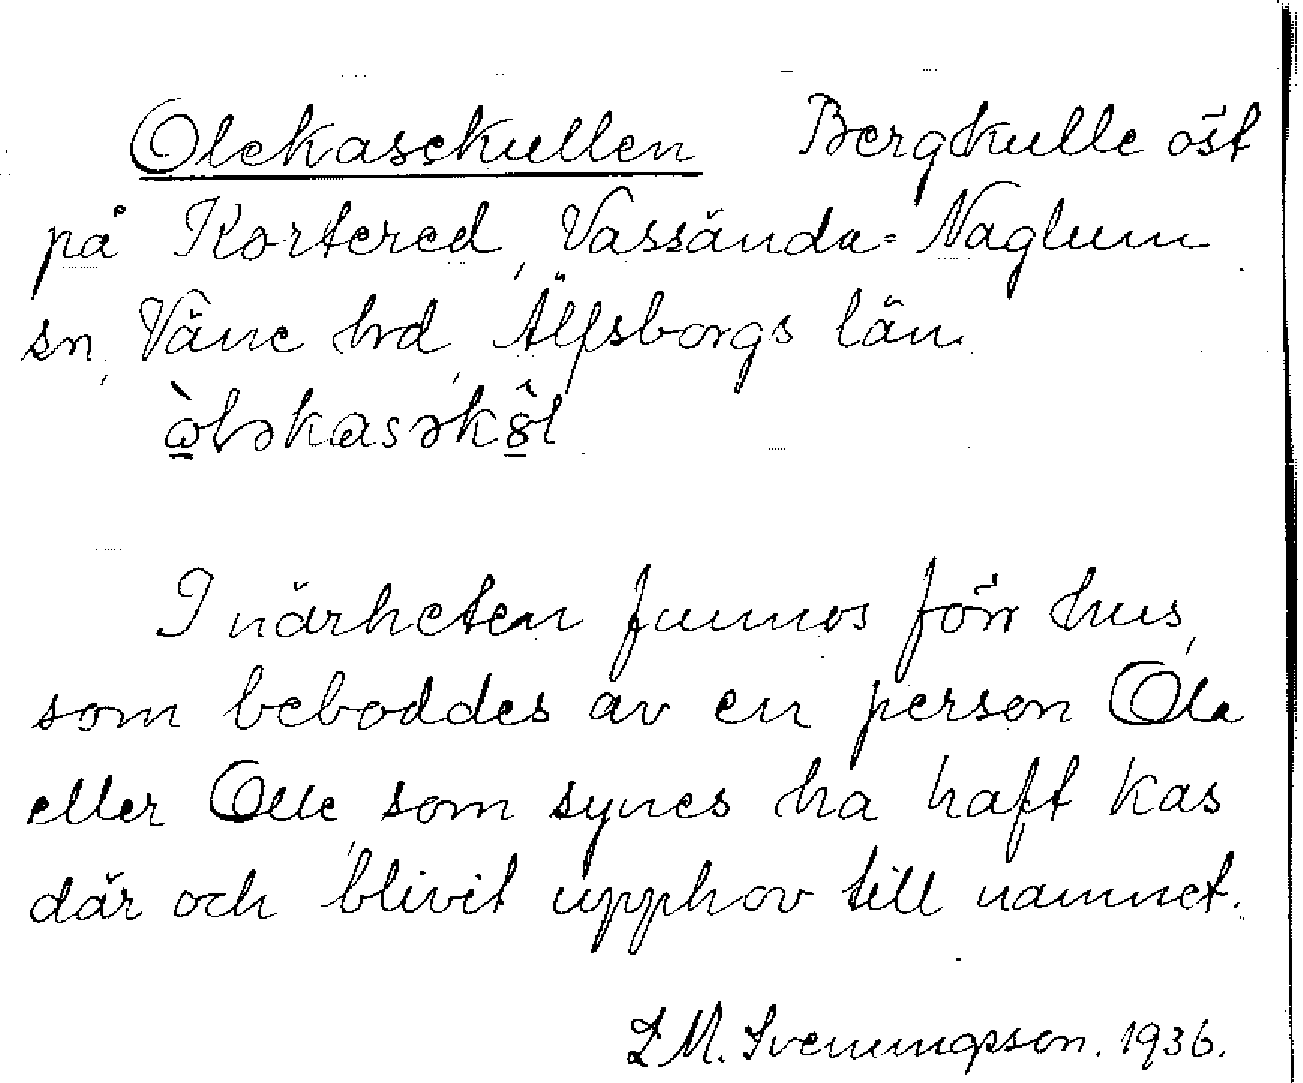 Olekasekullen Bergkulle öst
på Kortered, Vassända-Naglum
sn, Väne hrd, Älfsborgs län.
I närheten funnos förr hus,
som beboddes av en person Ola
eller Olle, som synes ha haft kas
där och blivit upphov till namnet.
L M. Svenungsson. 1936.